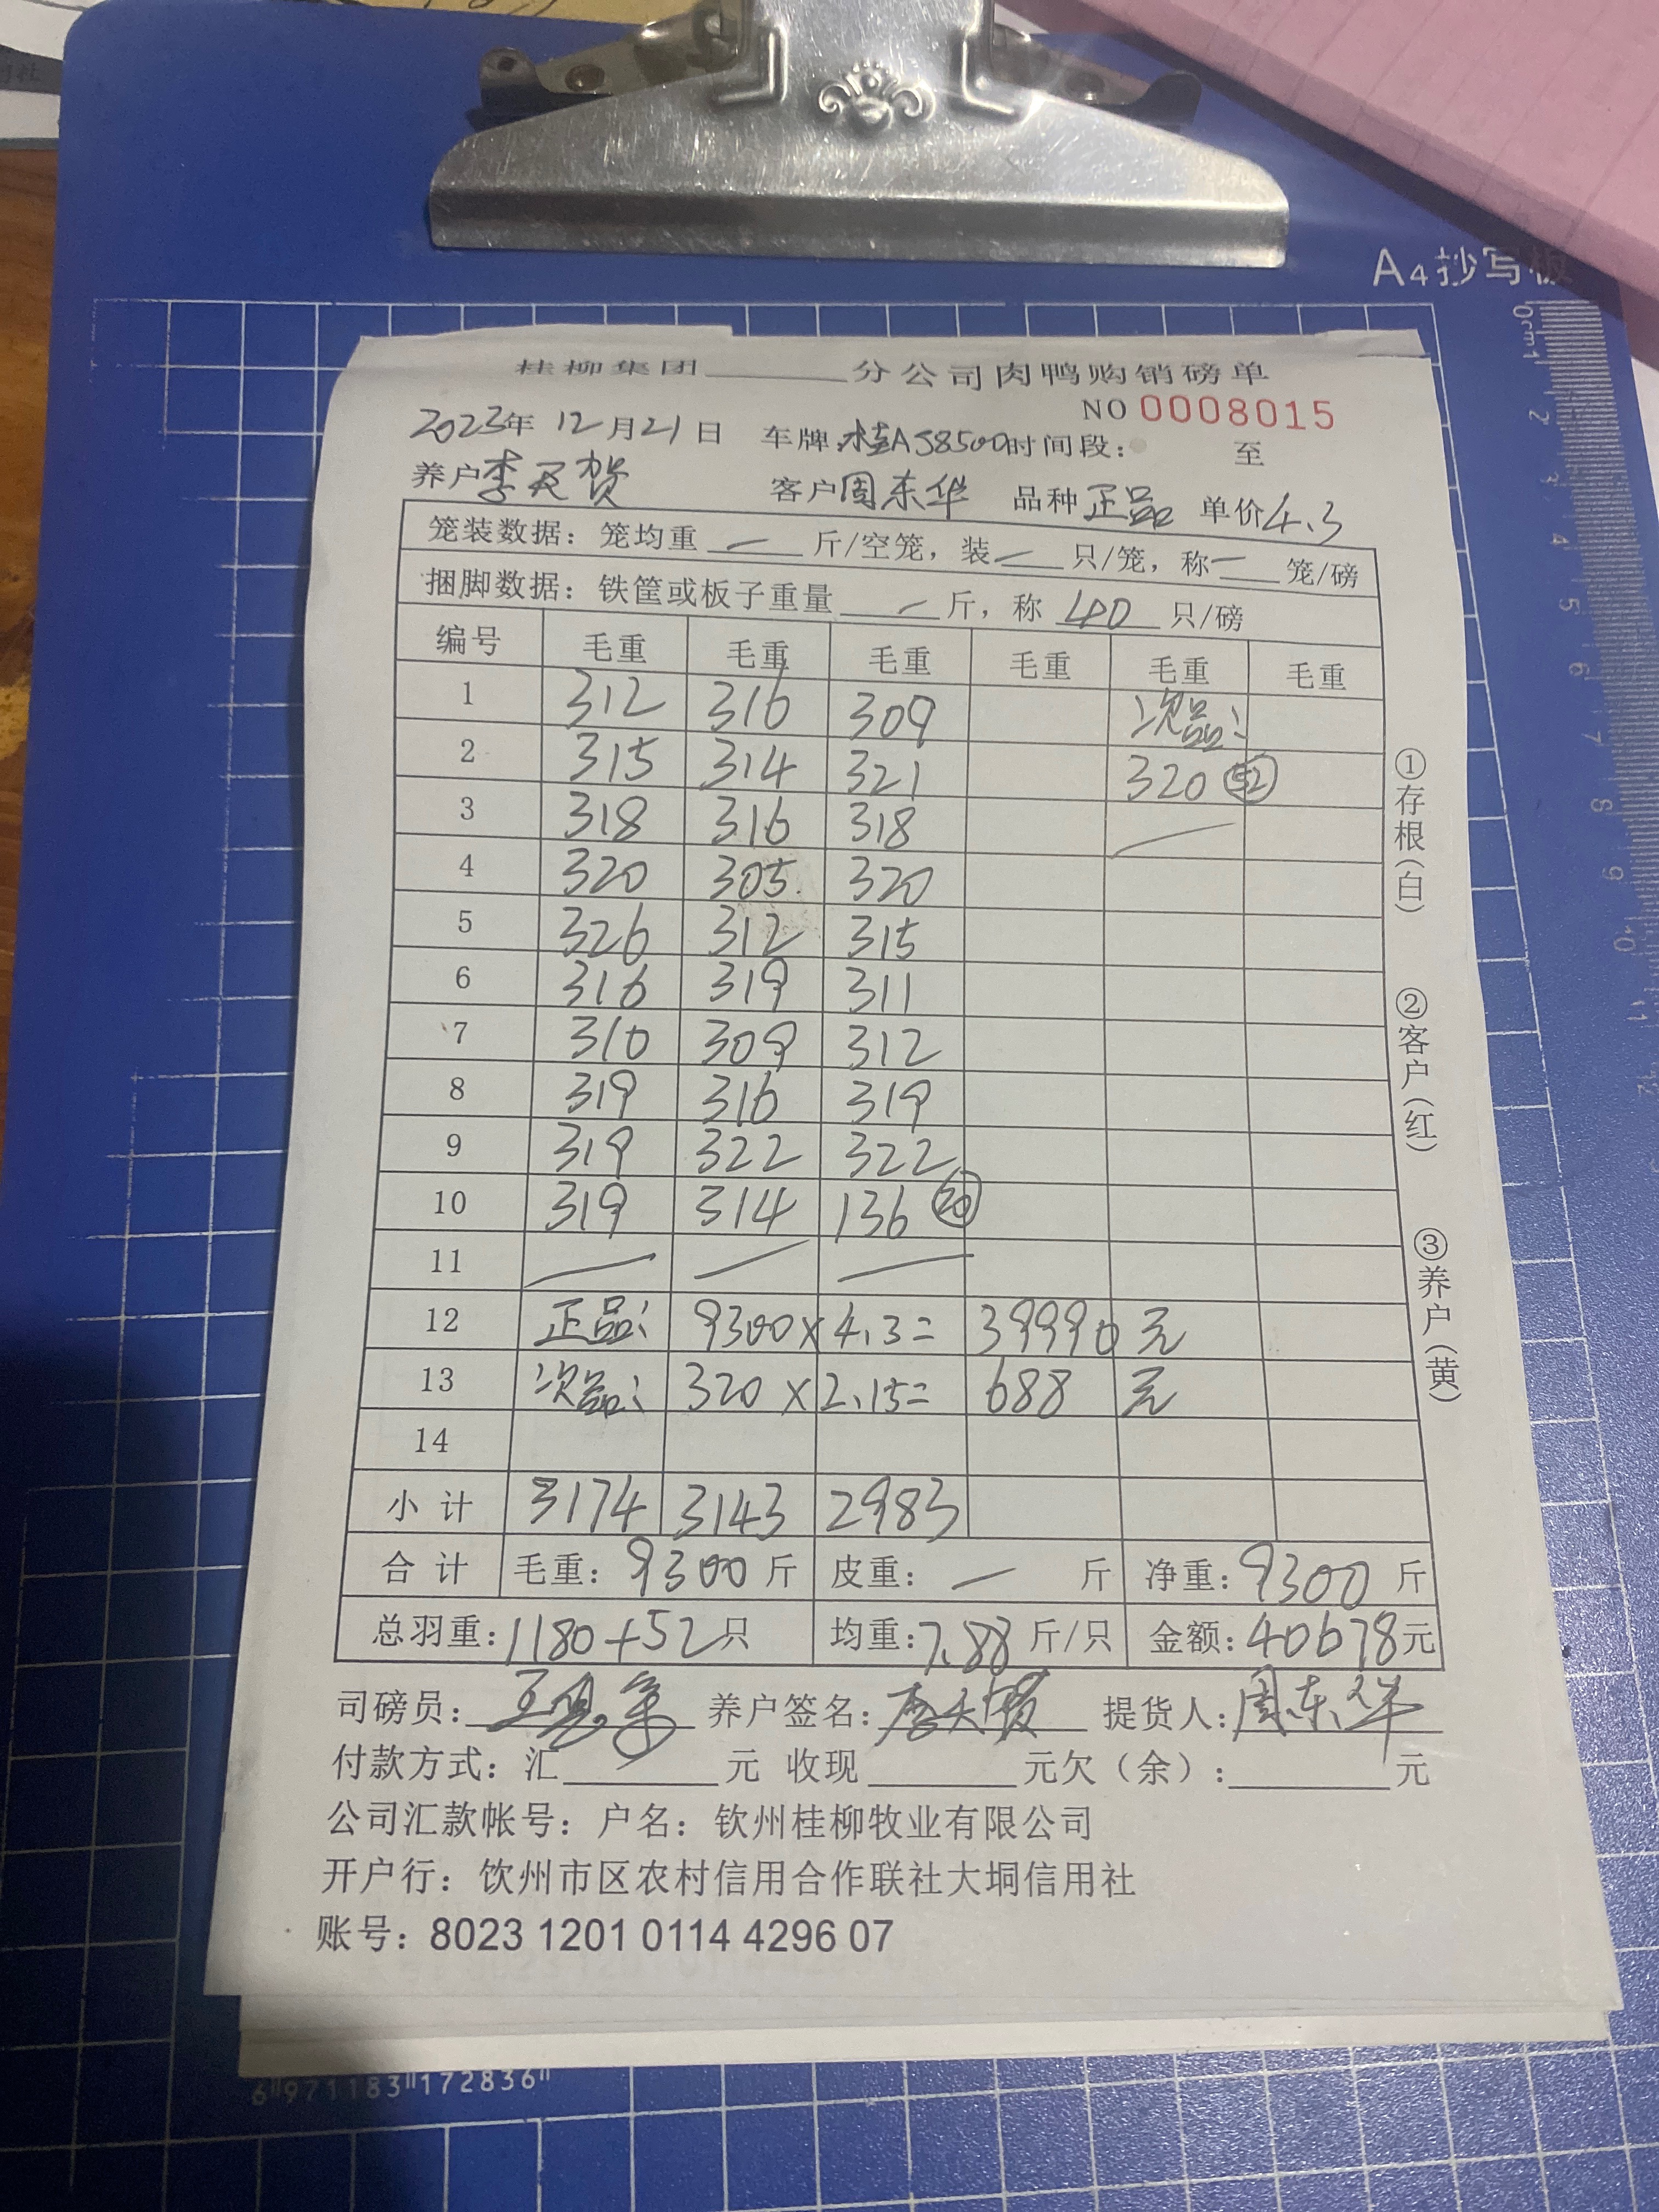 A4抄写板
0cm1 2 3 4 5 6 7 8 9 10 11 12
桂柳集团______分公司肉鸭购销磅单
NO 0008015
2023年 12月21日 车牌:桂A58500时间段: 至
养户李天贺 客户周东华 品种正品 单价4.3
笼装数据：笼均重 — 斤/空笼，装 — 只/笼，称 — 笼/磅
捆脚数据：铁筐或板子重量 — 斤，称 40 只/磅
编号 毛重 毛重 毛重 毛重 毛重 毛重
1 312 316 309 次品:
2 315 314 321 320 52
3 318 316 318 —
4 320 305 320
5 326 312 315
6 316 319 311
7 310 309 312
8 319 316 319
9 319 322 322
10 319 314 136 20
11 — — —
12 正品: 9300×4.3= 39990元
13 次品: 320×2.15= 688元
14
小计 3174 3143 2983
合计 毛重：9300斤 皮重：— 斤 净重：9300斤
总羽重:1180+52只 均重:7.88斤/只 金额:40678元
司磅员: 养户签名:李天贺 提货人:周东华
付款方式：汇______元 收现______元欠（余）:______元
公司汇款帐号：户名：钦州桂柳牧业有限公司
开户行：饮州市区农村信用合作联社大垌信用社
账号：8023 1201 0114 4296 07
①存根(白) ②客户(红) ③养户(黄)
6 971183 172836